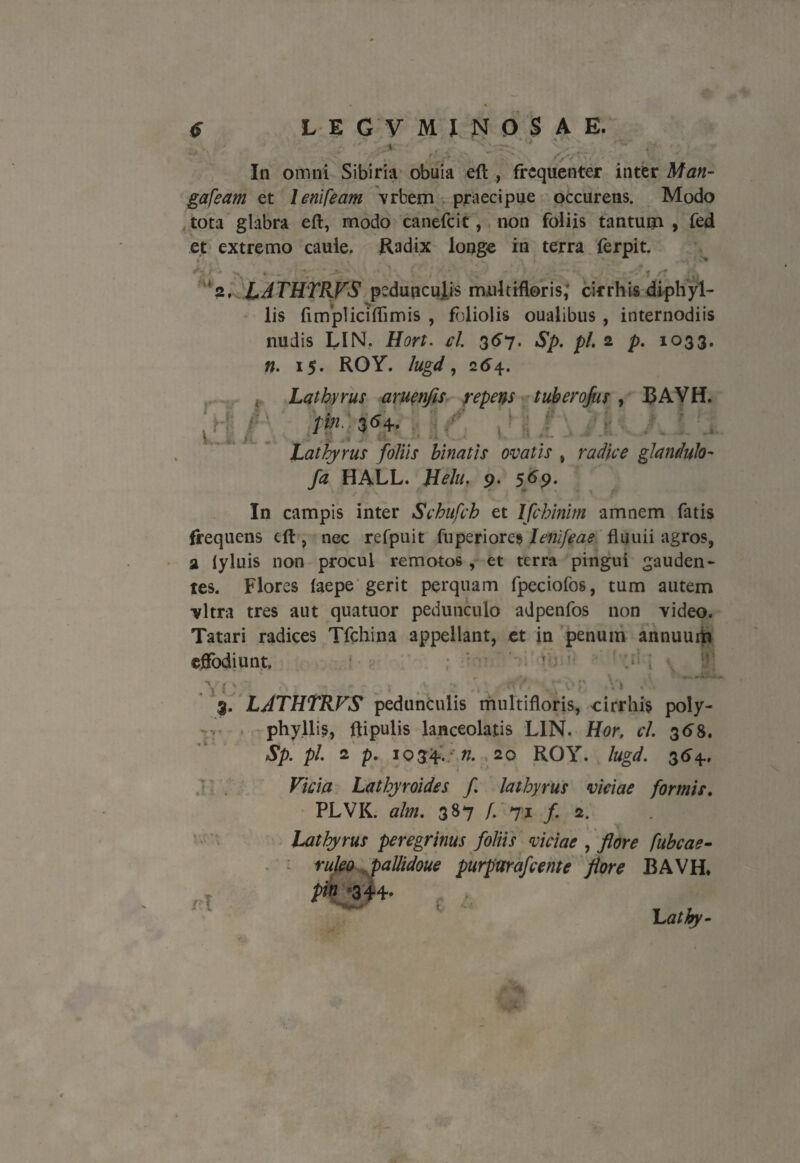 6 LEGVMINOSAE.
In omni Sibiria obuia eſt , frequenter inter Man-
gaſeam et Ieniſeam vrbem praecipue occurens. Modo
tota glabra eſt, modo caneſcit , non foliis tantum , ſed
et extremo caule. Radix longe in terra ſerpit.
2. LATHYRVS pedunculis multifloris, cirrhis diphyl-
lis ſimpliciſſimis , foliolis oualibus , internodiis
nudis LIN. Hort. cl. 367. Sp. pl. 2 p. 1033.
n. 15. ROY. lugd, 264.
Lathyrus aruenſis repens tuberoſus , BAVH.
pin. 364.
Lathyrus foliis binatis ovatis , radice glandulo-
ſa HALL. Helu. 9. 569.
In campis inter Schuſch et Iſchinim amnem ſatis
frequens eſt , nec reſpuit ſuperiores Ieniſeae fluuii agros,
a ſyluis non procul remotos , et terra pingui gauden-
tes. Flores ſaepe gerit perquam ſpecioſos, tum autem
vltra tres aut quatuor pedunculo adpenſos non video.
Tatari radices Tſchina appellant, et in penum annuum
effodiunt.
3. LATHYRVS pedunculis multifloris, cirrhis poly-
phyllis, ſtipulis lanceolatis LIN. Hor. cl. 368.
Sp. pl. 2 p. 1034. n. 20 ROY. lugd. 364.
Vicia Lathyroides ſ. lathyrus viciae formis.
PLVK. alm. 387 t. 71 f. 2.
Lathyrus peregrinus foliis viciae , flore ſubcae-
ruleo pallidoue purpuraſcente flore BAVH.
pin 344.
Lathy-